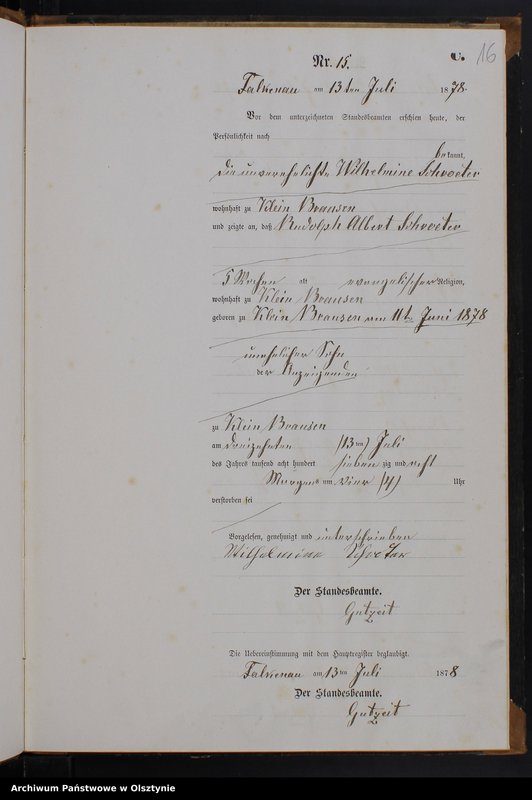 C. 16
Nr. 15.
Falkenau am 13ten Juli 1878.
Vor dem unterzeichneten Standesbeamten erschien heute, der
Persönlichkeit nach
bekannt,
die unverehelichte Wilhelmine Schroeter
wohnhaft zu Klein Brausen
und zeigte an, daß Rudolph Albert Schroeter
5 Wochen alt evangelischer Religion,
wohnhaft zu Klein Brausen
geboren zu Klein Brausen am 11t. Juni 1878
unehelicher Sohn
der Anzeigenden
zu Klein Brausen
am dreizehnten (13ten) Juli
des Jahres tausend acht hundert sieben zig und acht
Morgens um vier (4) Uhr
verstorben sei
Vorgelesen, genehmigt und unterschrieben
Wilhelmine Schroeter
Der Standesbeamte.
Gutzeit
Die Uebereinstimmung mit dem Hauptregister beglaubigt.
Falkenau am 13ten Juli 1878
Der Standesbeamte.
Gutzeit
Archiwum Państwowe w Olsztynie